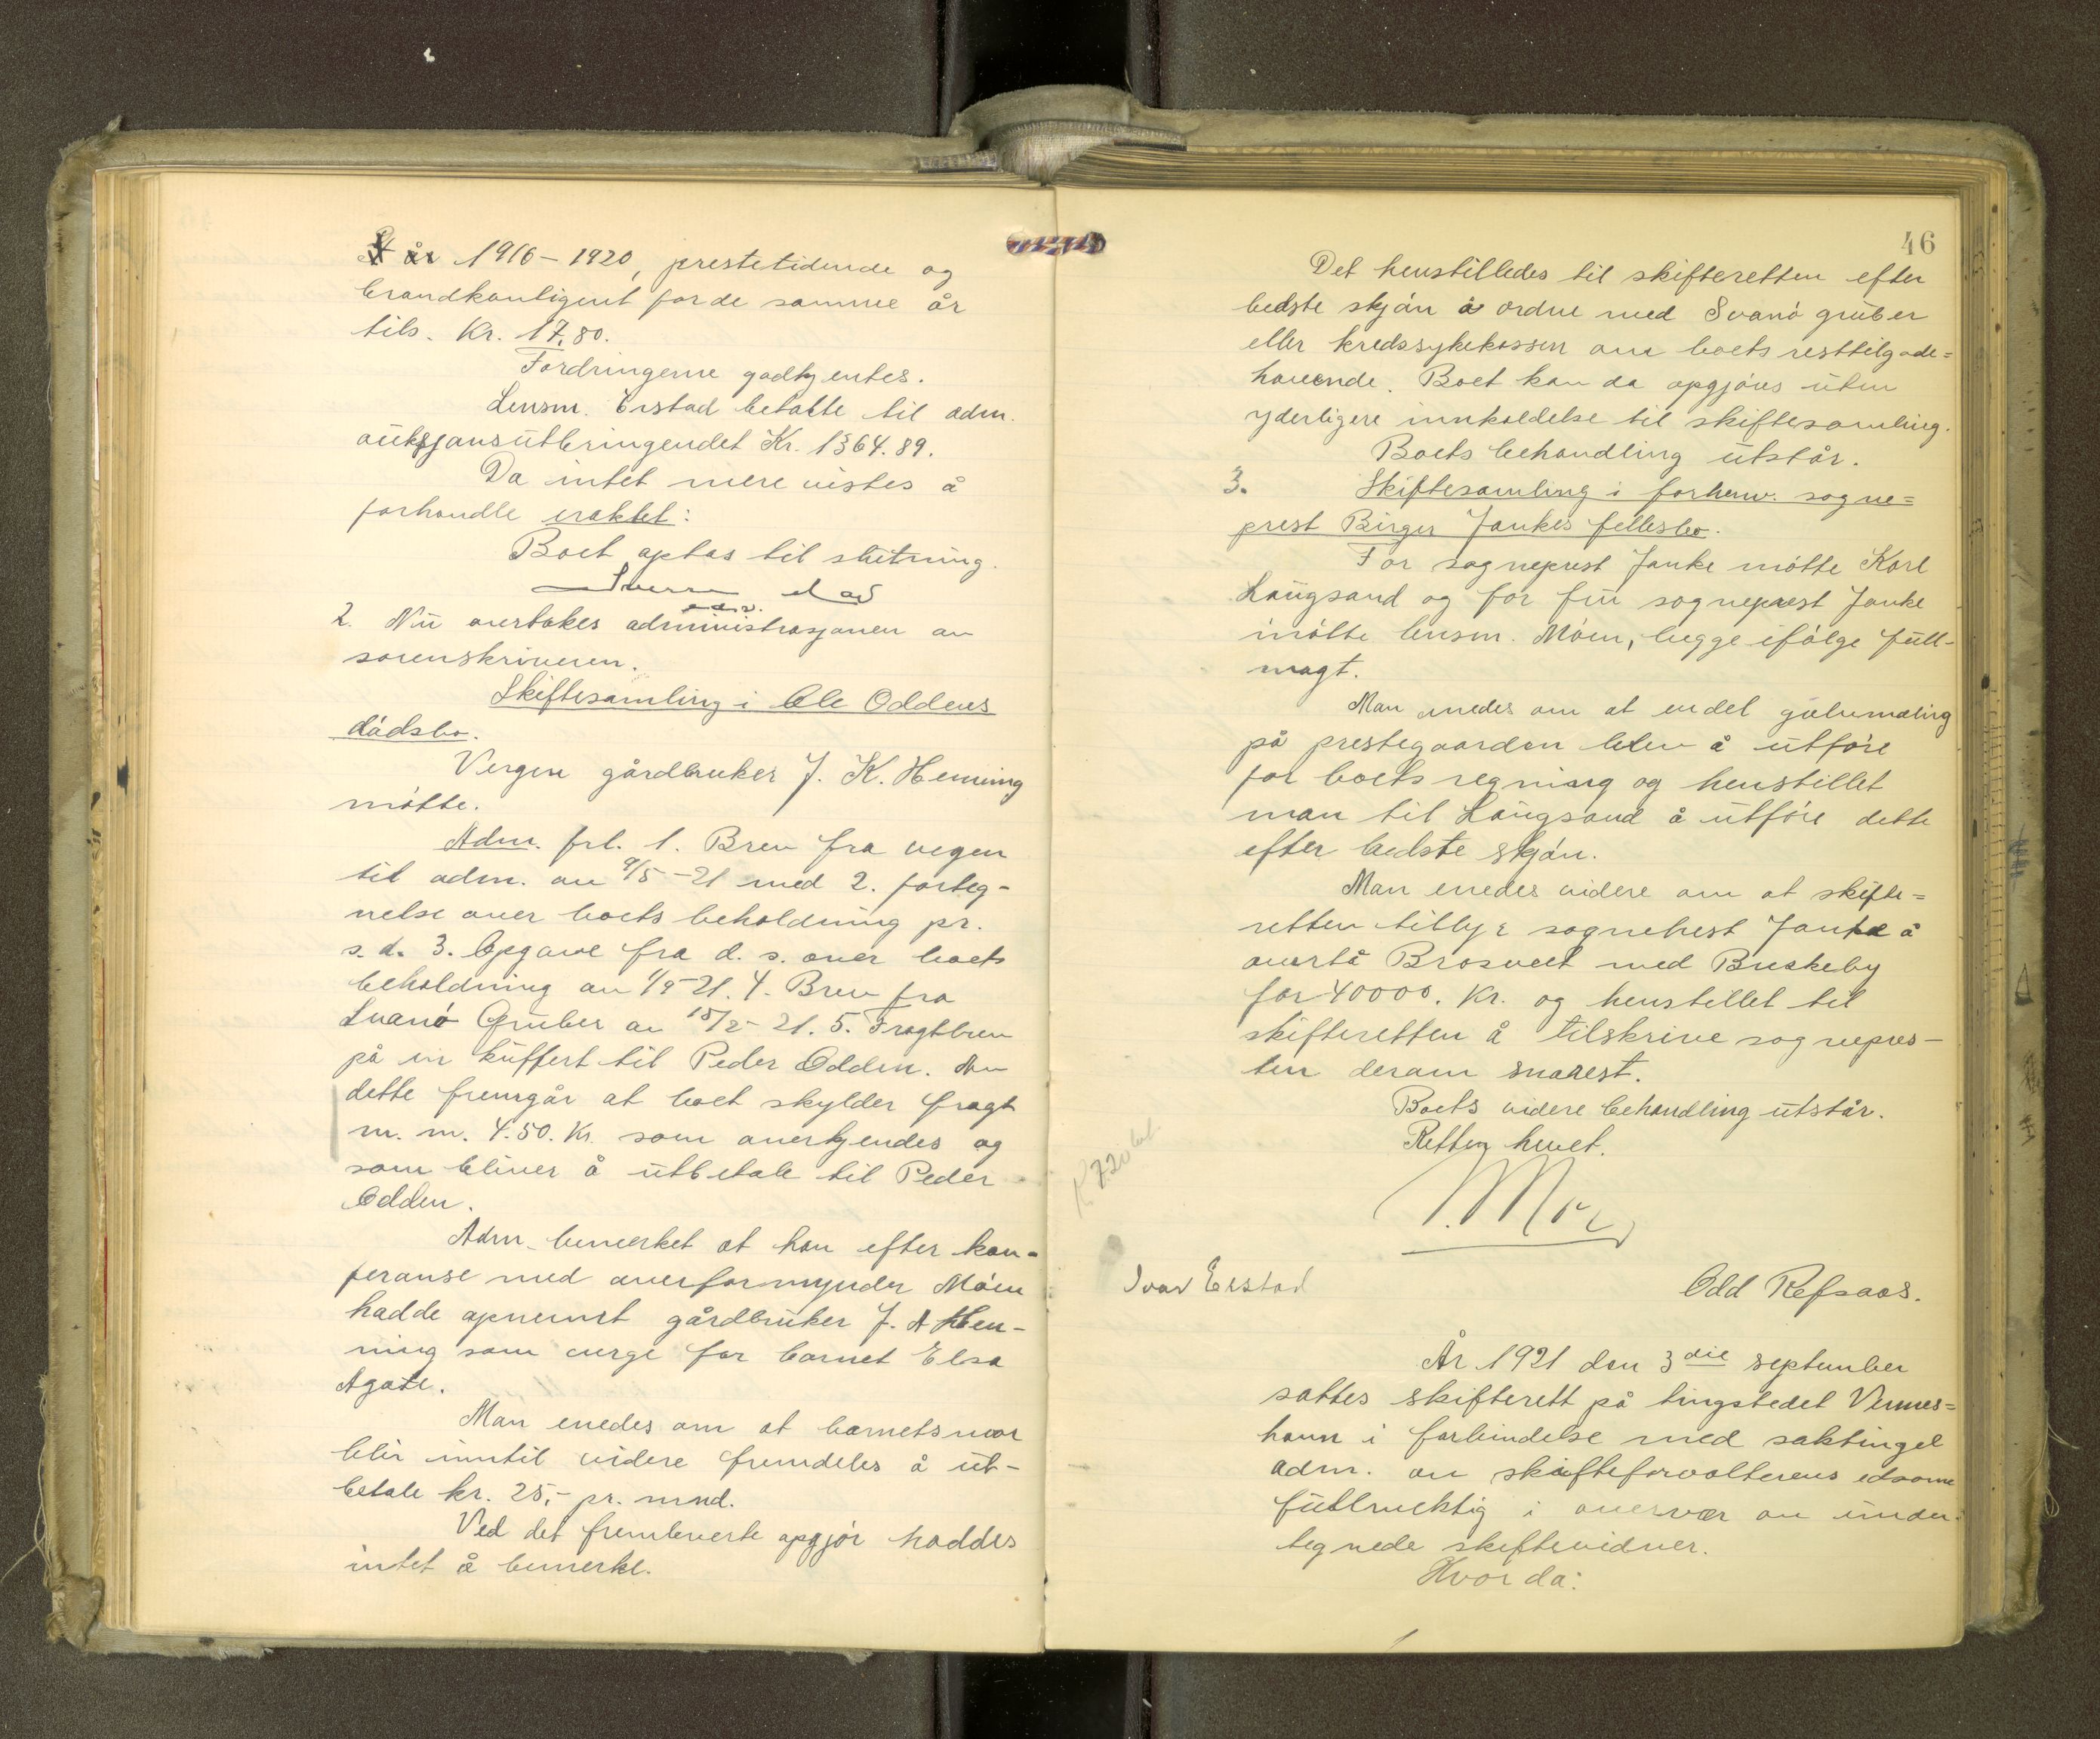 år 1916-1920, prestetidende og
brandkontigent for de samme år
tils. Kr. 17,80.
Fordringerne godkjentes.
Lensm. Erstad betalte til adm.
auksjonsutbringendet Kr. 1364.89.
Da intet mere vistes å
forhandle eraktet:
Boet optas til slutning.
edv.
2. Nu overtokes administrasjonen av
sorenskriveren.
Skiftesamling i Ole Oddens
dödsbo.
Vergen gårdbruker J. K. Henning
mötte.
Adm. frl. 1. Brev fra vegen
til adm. av 9/5-21 med 2. forteg-
nelse over boets beholdning pr.
s. d. 3. Opgave fra d. s. over boets
beholdning av 1/9-21. 4. Brev fra
Svanö Gruber av 15/2-21. 5. Fragtbrev
på en kuffert til Peder Odden. Av
dette fremgår at boet skylder fragt
m. m. 4.50. Kr. som anerkjendes og
som bliver å utbetale til Peder
Odden.
Adm. bemerket at han efter kon-
feranse med overformynder Möen
hadde opnevnt gårdbruker J. A Hen-
ning som verge for barnet Elsa
Agate.
Man enedes om at barnets mor
blir inntil videre fremdeles å ut-
betale kr. 25,- pr. mnd.
Ved det fremleverte opgjör haddes
intet å bemerke.
46
Det henstilledes til skifteretten efter
bedste skjön å ordne med Svanö gruber
eller kredssykekassen om boets resttilgode=
havende. Boet kan da opgjöres uten
yderligere innkaldelse til skiftesamling.
Boets behandling utstår.
3. Skiftesamling i forhenv. sogne=
prest Birger Jankes fellesbo.
For sogneprest Janke mötte Karl
Laugsand og for fru sogneprest Janke
mötte lensm. Möen, begge ifölge full-
magt.
Man enedes om at endel gulvmaling
på prestegaarden blev å utföre
for boets regning og henstillet
man til Laugsand å utföre dette
efter bedste skjön.
Man enedes videre om at skifte=
retten tilbyr sognehest Janke å
overta Brosveet med Buskeby
for 40000. Kr. og henstillet til
skifteretten å tilskrive sognepres-
ten derom snarest.
Boets videre behandling utstår.
Retten hevet.
Ivar Erstad
Odd Refsaas.
År 1921 den 3die september
sattes skifterett på tingstedet Vennes=
havn i forbindelse med saktinget
adm. av skifteforvalterens edsvorne
fullmektig i overvær av under-
tegnede skiftevidner.
Hvor da: